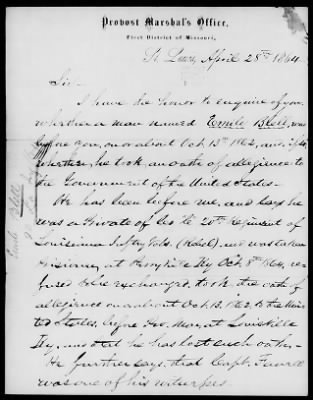 Provost Marshal's Office,
First District of Missouri,
St. Louis, April 28th 1864
Sir.
I have the honor to enquire of you
whether a man named Emile Blell, was
before you, on or about Oct. 13th 1862, and, if
he took an oath of allegiance to
the Government of the United States.
He has been before me, and says he
was a Private of Co the 20th Regiment of
Louisiana Vols. (Rebel), and was taken
prisoner at Perryville Ky Oct. 8th 1862, re-
fused to be exchanged, took the oath of
allegiance on or about Oct. 13. 1862. to the Uni-
ted States, before Pro. Mar. at Louisville
Ky., and that he has lost such oath.
He further says, that Capt.
was one of his witnesses
Emile Blell